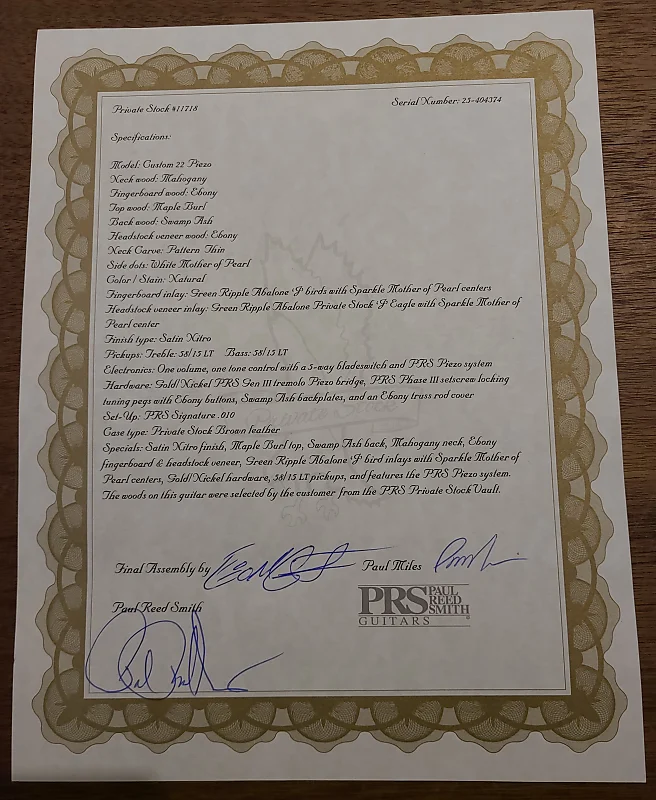 Private Stock #11718
Serial Number: 23-404374
Specifications:
Model: Custom 22 Piezo
Neck wood: Mahogany
Fingerboard wood: Ebony
Top wood: Maple Burl
Back wood: Swamp Ash
Headstock veneer wood: Ebony
Neck Carve: Pattern Thin
Side dots: White Mother of Pearl
Color / Stain: Natural
Fingerboard inlay: Green Ripple Abalone 'J' birds with Sparkle Mother of Pearl centers
Headstock veneer inlay: Green Ripple Abalone Private Stock 'J' Eagle with Sparkle Mother of
Pearl center
Finish type: Satin Nitro
Pickups: Treble: 58/15 LT Bass: 58/15 LT
Electronics: One volume, one tone control with a 5-way bladeswitch and PRS Piezo system
Hardware: Gold/Nickel PRS Gen III tremolo Piezo bridge, PRS Phase III setscrew locking
tuning pegs with Ebony buttons, Swamp Ash backplates, and an Ebony truss rod cover
Set-Up: PRS Signature .010
Case type: Private Stock Brown leather
Specials: Satin Nitro finish, Maple Burl top, Swamp Ash back, Mahogany neck, Ebony
fingerboard & headstock veneer, Green Ripple Abalone 'J' bird inlays with Sparkle Mother of
Pearl centers, Gold/Nickel hardware, 58/15 LT pickups, and features the PRS Piezo system.
The woods on this guitar were selected by the customer from the PRS Private Stock Vault.
Final Assembly by
Paul Miles
Paul Reed Smith
PRS PAUL REED SMITH
GUITARS